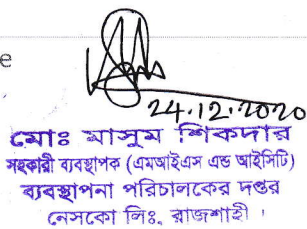 e
24.12.2020
মোঃ মাসুম শিকদার
সহকারী ব্যবস্থাপক (এমআইএস এন্ড আইসিটি)
ব্যবস্থাপনা পরিচালকের দপ্তর
নেসকো লিঃ, রাজশাহী।